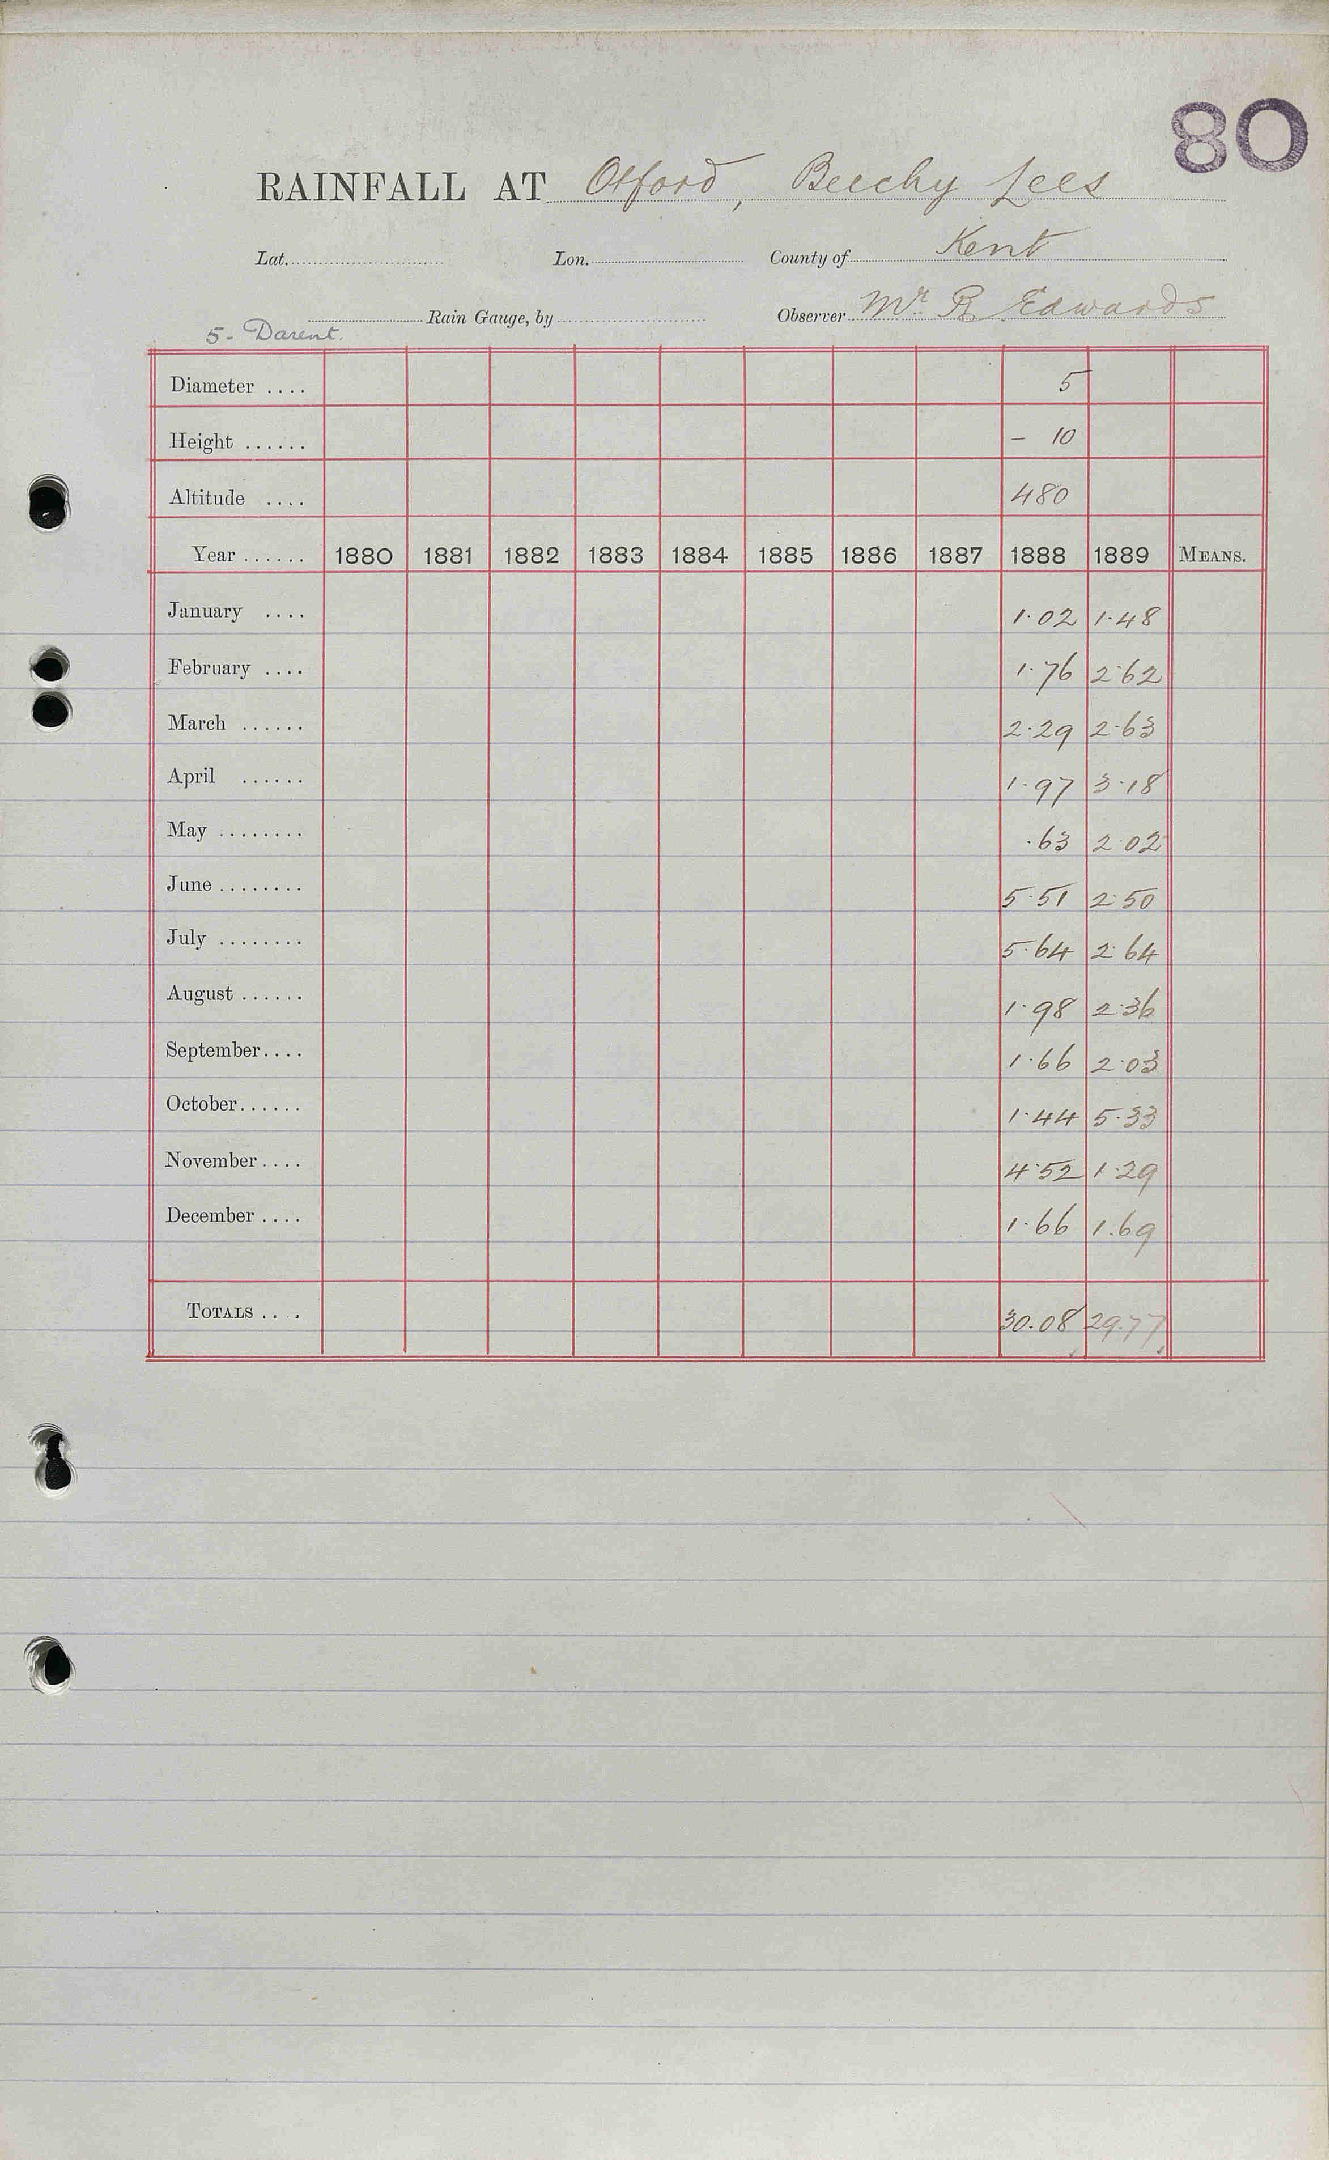 80
RAINFALL AT Otford, Beechy Lees
Lat. Lon. County of Kent
Rain Gauge, by Observer Mr R Edwards
5 - Darent.
Diameter .... 5
Height ...... - 10
Altitude .... 480
Year ...... 1880 1881 1882 1883 1884 1885 1886 1887 1888 1889 MEANS.
January .... 1.02 1.48
February .... 1.76 2.62
March ...... 2.29 2.63
April ...... 1.97 3.18
May ........ .63 2.02
June ........ 5.51 2.50
July ........ 5.64 2.64
August ...... 1.98 2.36
September.... 1.66 2.03
October...... 1.44 5.33
November.... 4.52 1.29
December.... 1.66 1.69
TOTALS ... . 30.08 29.77